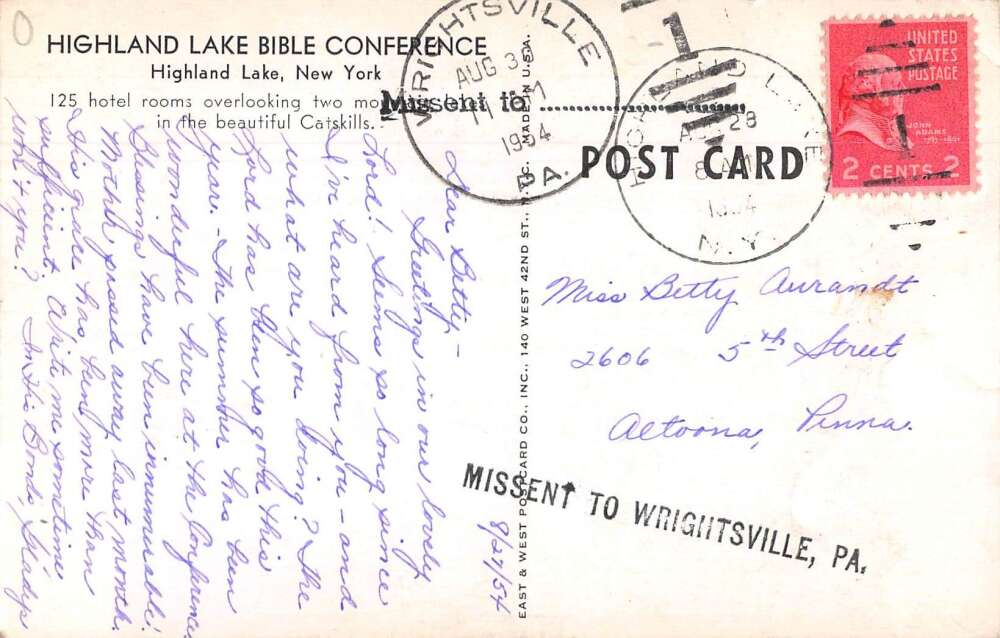 HIGHLAND LAKE BIBLE CONFERENCE
Highland Lake, New York
125 hotel rooms overlooking two
in the beautiful Catskills.
Missent to
WRIGHTSVILLE
AUG 30
1954
PA.
HIGHLAND LAKE
28
8 AM
1954
N.Y.
1
1
UNITED
STATES
POSTAGE
JOHN
ADAMS
2 CENTS 2
POST CARD
EAST & WEST POSTCARD CO., INC., 140 WEST 42ND ST., N.Y.C. MADE IN U.S.A.
8/27/54
Dear Betty -
Greetings in our lovely
Lord! Seems so long since
I've heard from you - and
what are you doing? The
Lord has been so good this
year. - The summer has been
wonderful here at the Conference.
Blessings have been innumerable!
Mother passed away last month.
His grace has been more than
sufficient. Write me sometime
won't you?
In His Bonds, Gladys
Miss Betty Aurandt
2606 5th Street
Altoona, Penna.
MISSENT TO WRIGHTSVILLE, PA.